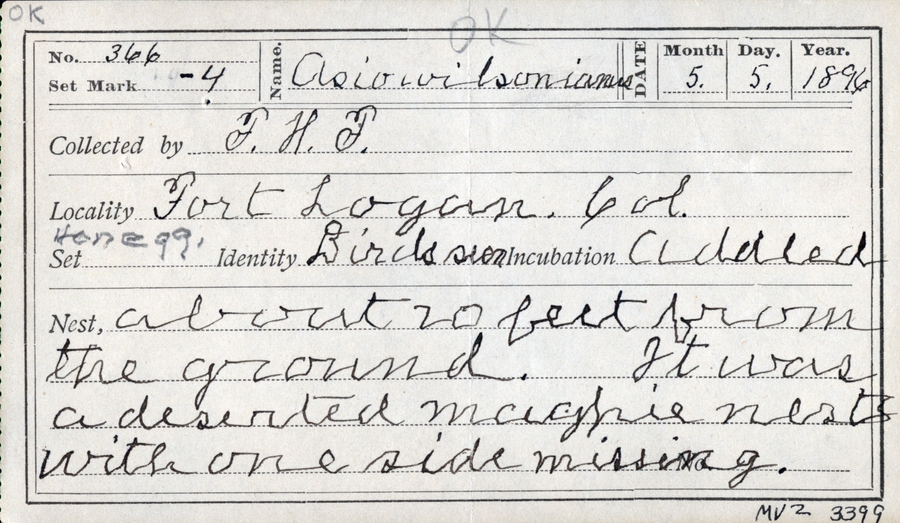 OK
OK
No. 366 Name. Asio wilsonianus DATE Month Day. Year.
Set Mark -4 5. 5. 1896
Collected by F. H. F.
Locality Fort Logan. Col.
egg.
Set Identity Birds seen Incubation Addled
Nest, about 20 feet from
the ground. It was
a deserted magpie nests
with one side missing.
MVZ 3399